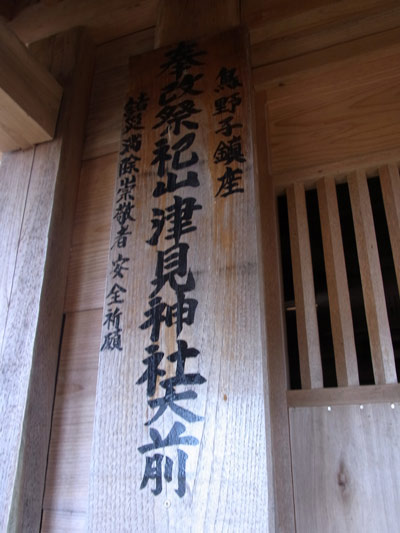 熊野子鎮座
奉改祭祀山津見神社大前
結災満除崇敬者安全祈願